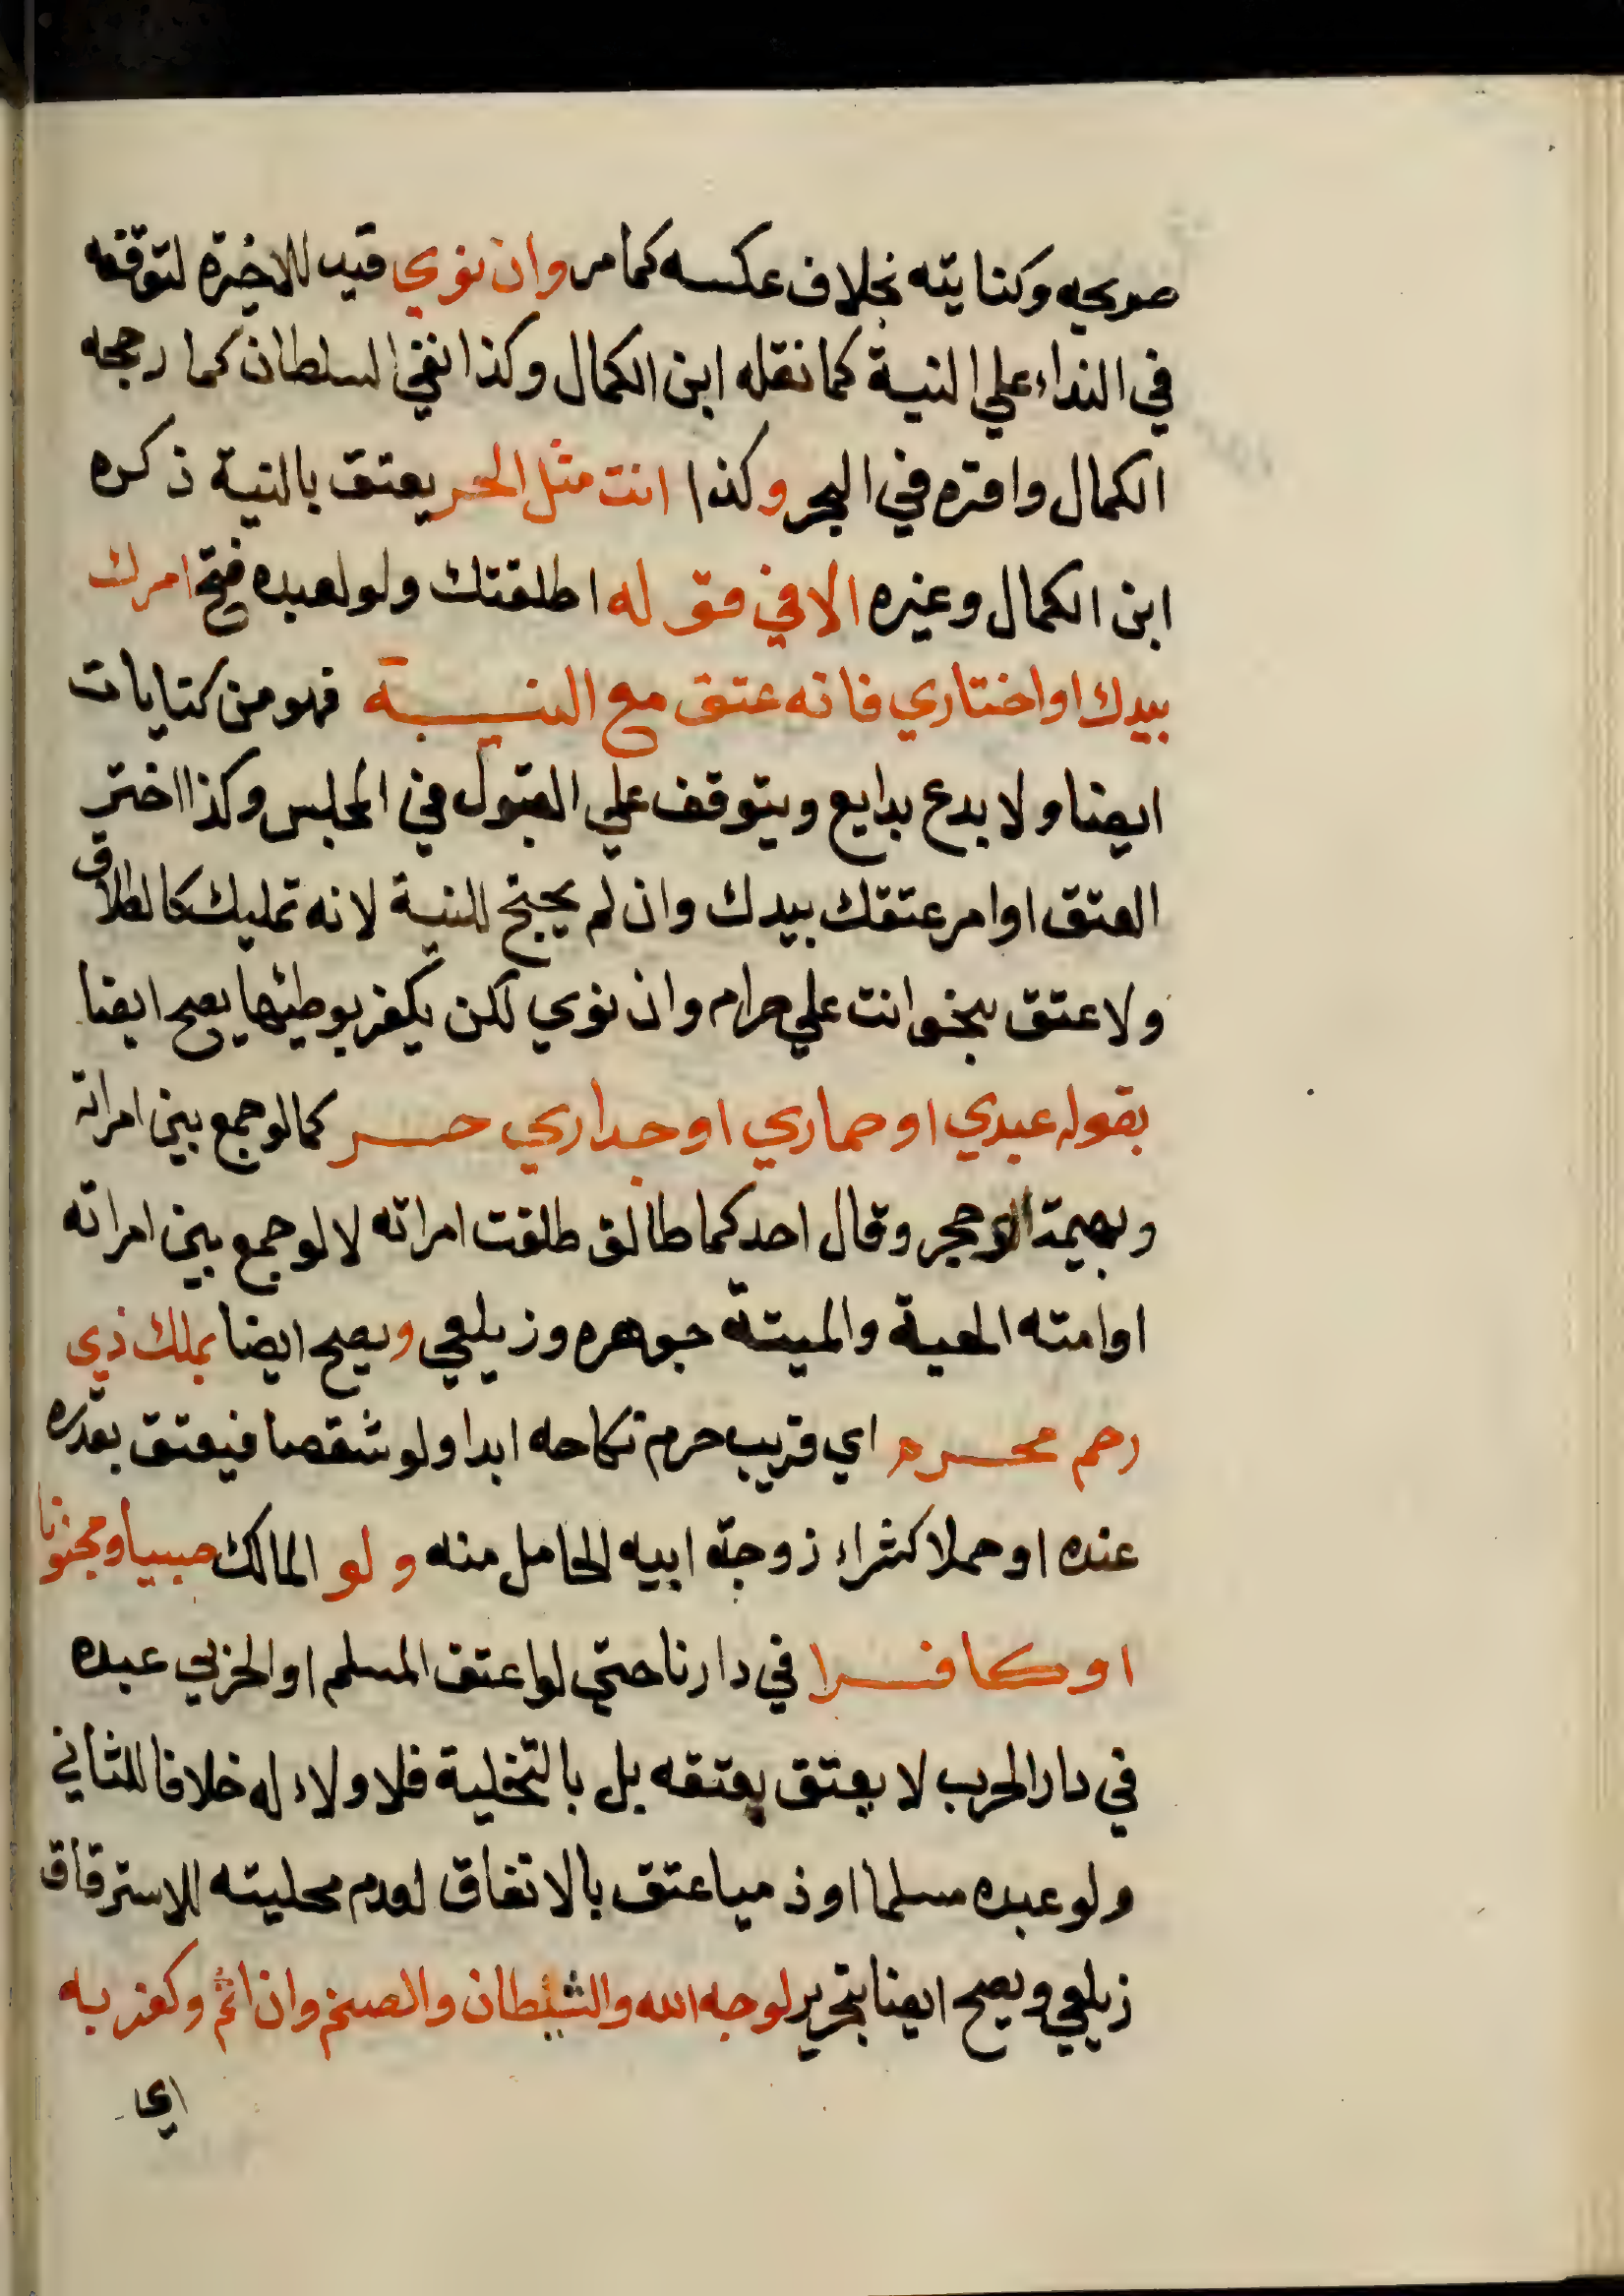 صريحه وكنايته بخلاف عكسه كما مر وان نوي قيد للاخيرة لتوقفه
في النداء علي النية كما نقله ابن الكمال وكذا نفي السلطان كما رجحه
الكمال واقره في البحر وكذا انت مثل الحر يعتق بالنية ذكره
ابن الكمال وغيره الا في قوله اطلقتك ولو لعبده فتح امرك
بيدك او اختاري فانه عتق مع النيـــة فهو من كنايات
ايضا ولا بدع بدايع ويتوقف علي القبول في المجلس وكذا اختر
العتق او امر عتقك بيدك وان لم يحتج للنية لانه تمليك كالطلاق
ولا عتق بنحو انت علي حرام وان نوي لكن يكفر بوطئها يصح ايضا
بقوله عبدي او حماري او جداري حـــر كما لو جمع بين امراته
وبهيمة او حجر وقال احدكما طالق طلقت امراته لا لو جمع بين امراته
او امته الحية والميتة جوهره وزيلعي ويصح ايضا بملك ذي
رحم محـــرم اي قريب حرم نكاحه ابدا ولو شقصا فيعتق بقدره
عنده او حملا كشراء زوجة ابيه الحامل منه ولو المالك صبيا او مجنونا
او كافـــرا في دارنا حتي لو اعتق المسلم او الحربي عبده
في دار الحرب لا يعتق بعتقه بل بالتخلية فلا ولاء له خلافا للثاني
ولو عبده مسلما او ذميا عتق بالاتفاق لعدم محليته للاسترقاق
زيلعي ويصح ايضا بتحرير لوجه الله والشيطان والصنم وان اثم وكفر به
اي